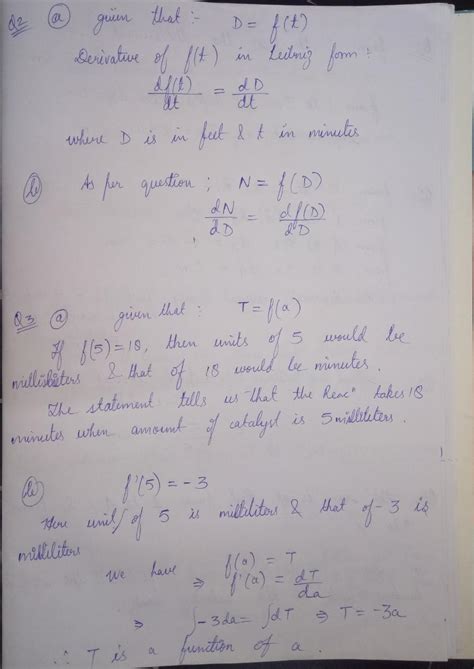 Q2 (a) given that :- D = f(t)
Derivative of f(t) in Leibniz form :
df(t)/dt = dD/dt
where D is in feet & t in minutes
(b) As per question ; N = f(D)
dN/dD = df(D)/dD
Q3 (a) given that : T = f(a)
If f(5) = 18, then units of 5 would be
milliliters & that of 18 would be minutes.
The statement tells us that the Reacⁿ takes 18
minutes when amount of catalyst is 5 milliliters.
(b) f'(5) = -3
Here unit of 5 is milliliters & that of -3 is
milliliters
We have f(a) = T
⇒ f'(a) = dT/da
⇒ ∫-3da = ∫dT ⇒ T = -3a
∴ T is a function of a.